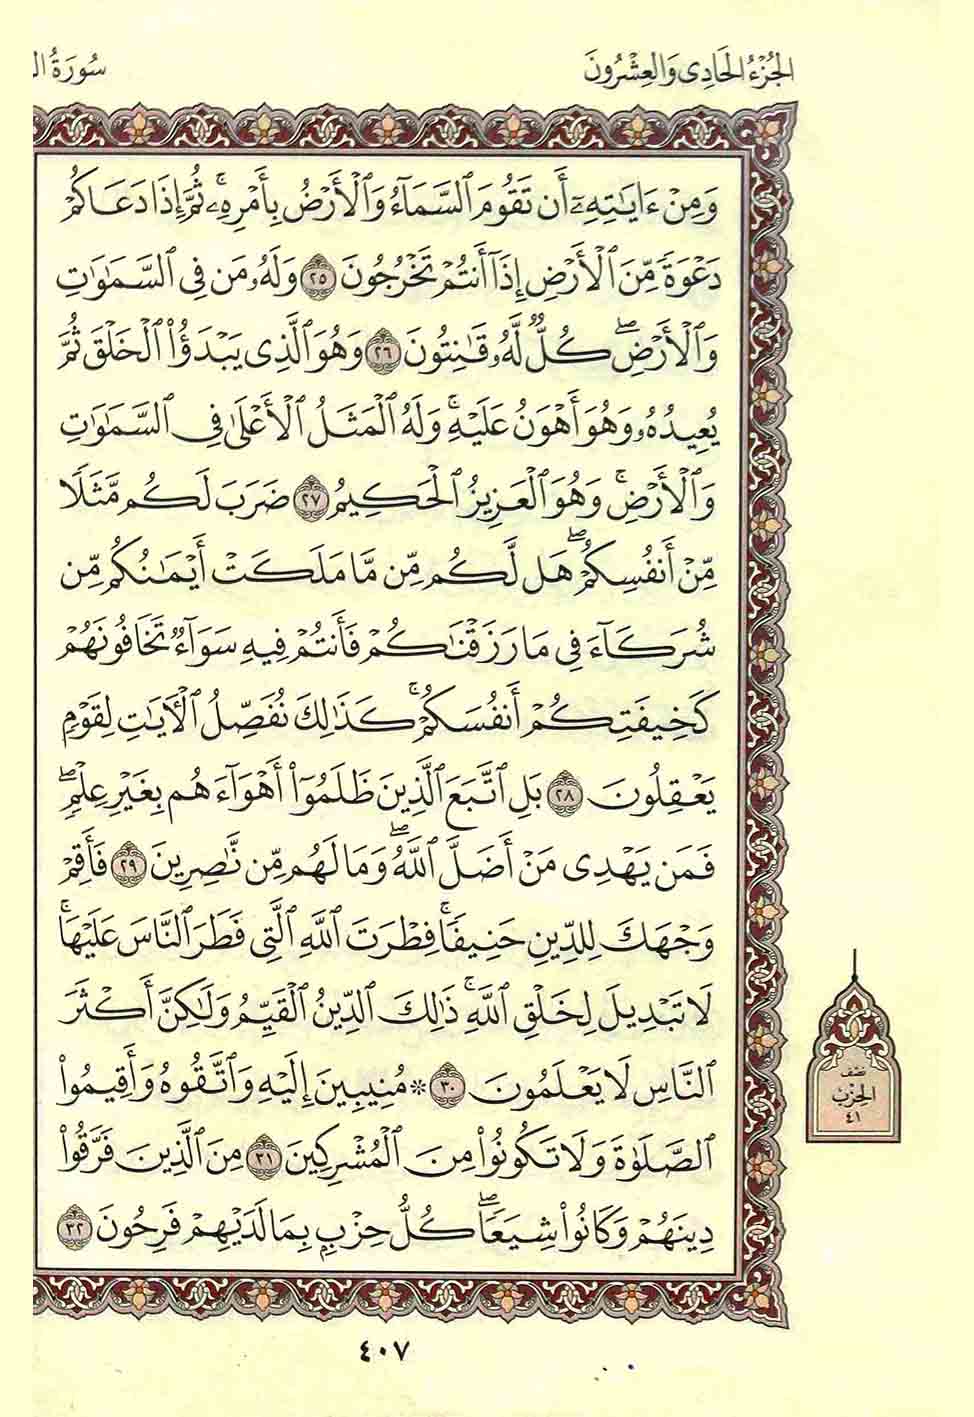 الجُزْءُ الحَادِي وَالعِشْرُونَ
سُورَةُ
وَمِنْ ءَايَٰتِهِۦٓ أَن تَقُومَ ٱلسَّمَآءُ وَٱلْأَرْضُ بِأَمْرِهِۦۚ ثُمَّ إِذَا دَعَاكُمْ
دَعْوَةً مِّنَ ٱلْأَرْضِ إِذَآ أَنتُمْ تَخْرُجُونَ ٢٥ وَلَهُۥ مَن فِى ٱلسَّمَٰوَٰتِ
وَٱلْأَرْضِۖ كُلٌّ لَّهُۥ قَٰنِتُونَ ٢٦ وَهُوَ ٱلَّذِى يَبْدَؤُا۟ ٱلْخَلْقَ ثُمَّ
يُعِيدُهُۥ وَهُوَ أَهْوَنُ عَلَيْهِۚ وَلَهُ ٱلْمَثَلُ ٱلْأَعْلَىٰ فِى ٱلسَّمَٰوَٰتِ
وَٱلْأَرْضِۚ وَهُوَ ٱلْعَزِيزُ ٱلْحَكِيمُ ٢٧ ضَرَبَ لَكُم مَّثَلًا
مِّنْ أَنفُسِكُمْۖ هَل لَّكُم مِّن مَّا مَلَكَتْ أَيْمَٰنُكُم مِّن
شُرَكَآءَ فِى مَا رَزَقْنَٰكُمْ فَأَنتُمْ فِيهِ سَوَآءٌ تَخَافُونَهُمْ
كَخِيفَتِكُمْ أَنفُسَكُمْۚ كَذَٰلِكَ نُفَصِّلُ ٱلْءَايَٰتِ لِقَوْمٍ
يَعْقِلُونَ ٢٨ بَلِ ٱتَّبَعَ ٱلَّذِينَ ظَلَمُوٓا۟ أَهْوَآءَهُم بِغَيْرِ عِلْمٍۖ
فَمَن يَهْدِى مَنْ أَضَلَّ ٱللَّهُۖ وَمَا لَهُم مِّن نَّٰصِرِينَ ٢٩ فَأَقِمْ
وَجْهَكَ لِلدِّينِ حَنِيفًاۚ فِطْرَتَ ٱللَّهِ ٱلَّتِى فَطَرَ ٱلنَّاسَ عَلَيْهَاۚ
لَا تَبْدِيلَ لِخَلْقِ ٱللَّهِۚ ذَٰلِكَ ٱلدِّينُ ٱلْقَيِّمُ وَلَٰكِنَّ أَكْثَرَ
ٱلنَّاسِ لَا يَعْلَمُونَ ٣٠ * مُنِيبِينَ إِلَيْهِ وَٱتَّقُوهُ وَأَقِيمُوا۟
ٱلصَّلَوٰةَ وَلَا تَكُونُوا۟ مِنَ ٱلْمُشْرِكِينَ ٣١ مِنَ ٱلَّذِينَ فَرَّقُوا۟
دِينَهُمْ وَكَانُوا۟ شِيَعًاۖ كُلُّ حِزْبٍۭ بِمَا لَدَيْهِمْ فَرِحُونَ ٣٢
نصف
الحِزْبِ
٤١
٤٠٧